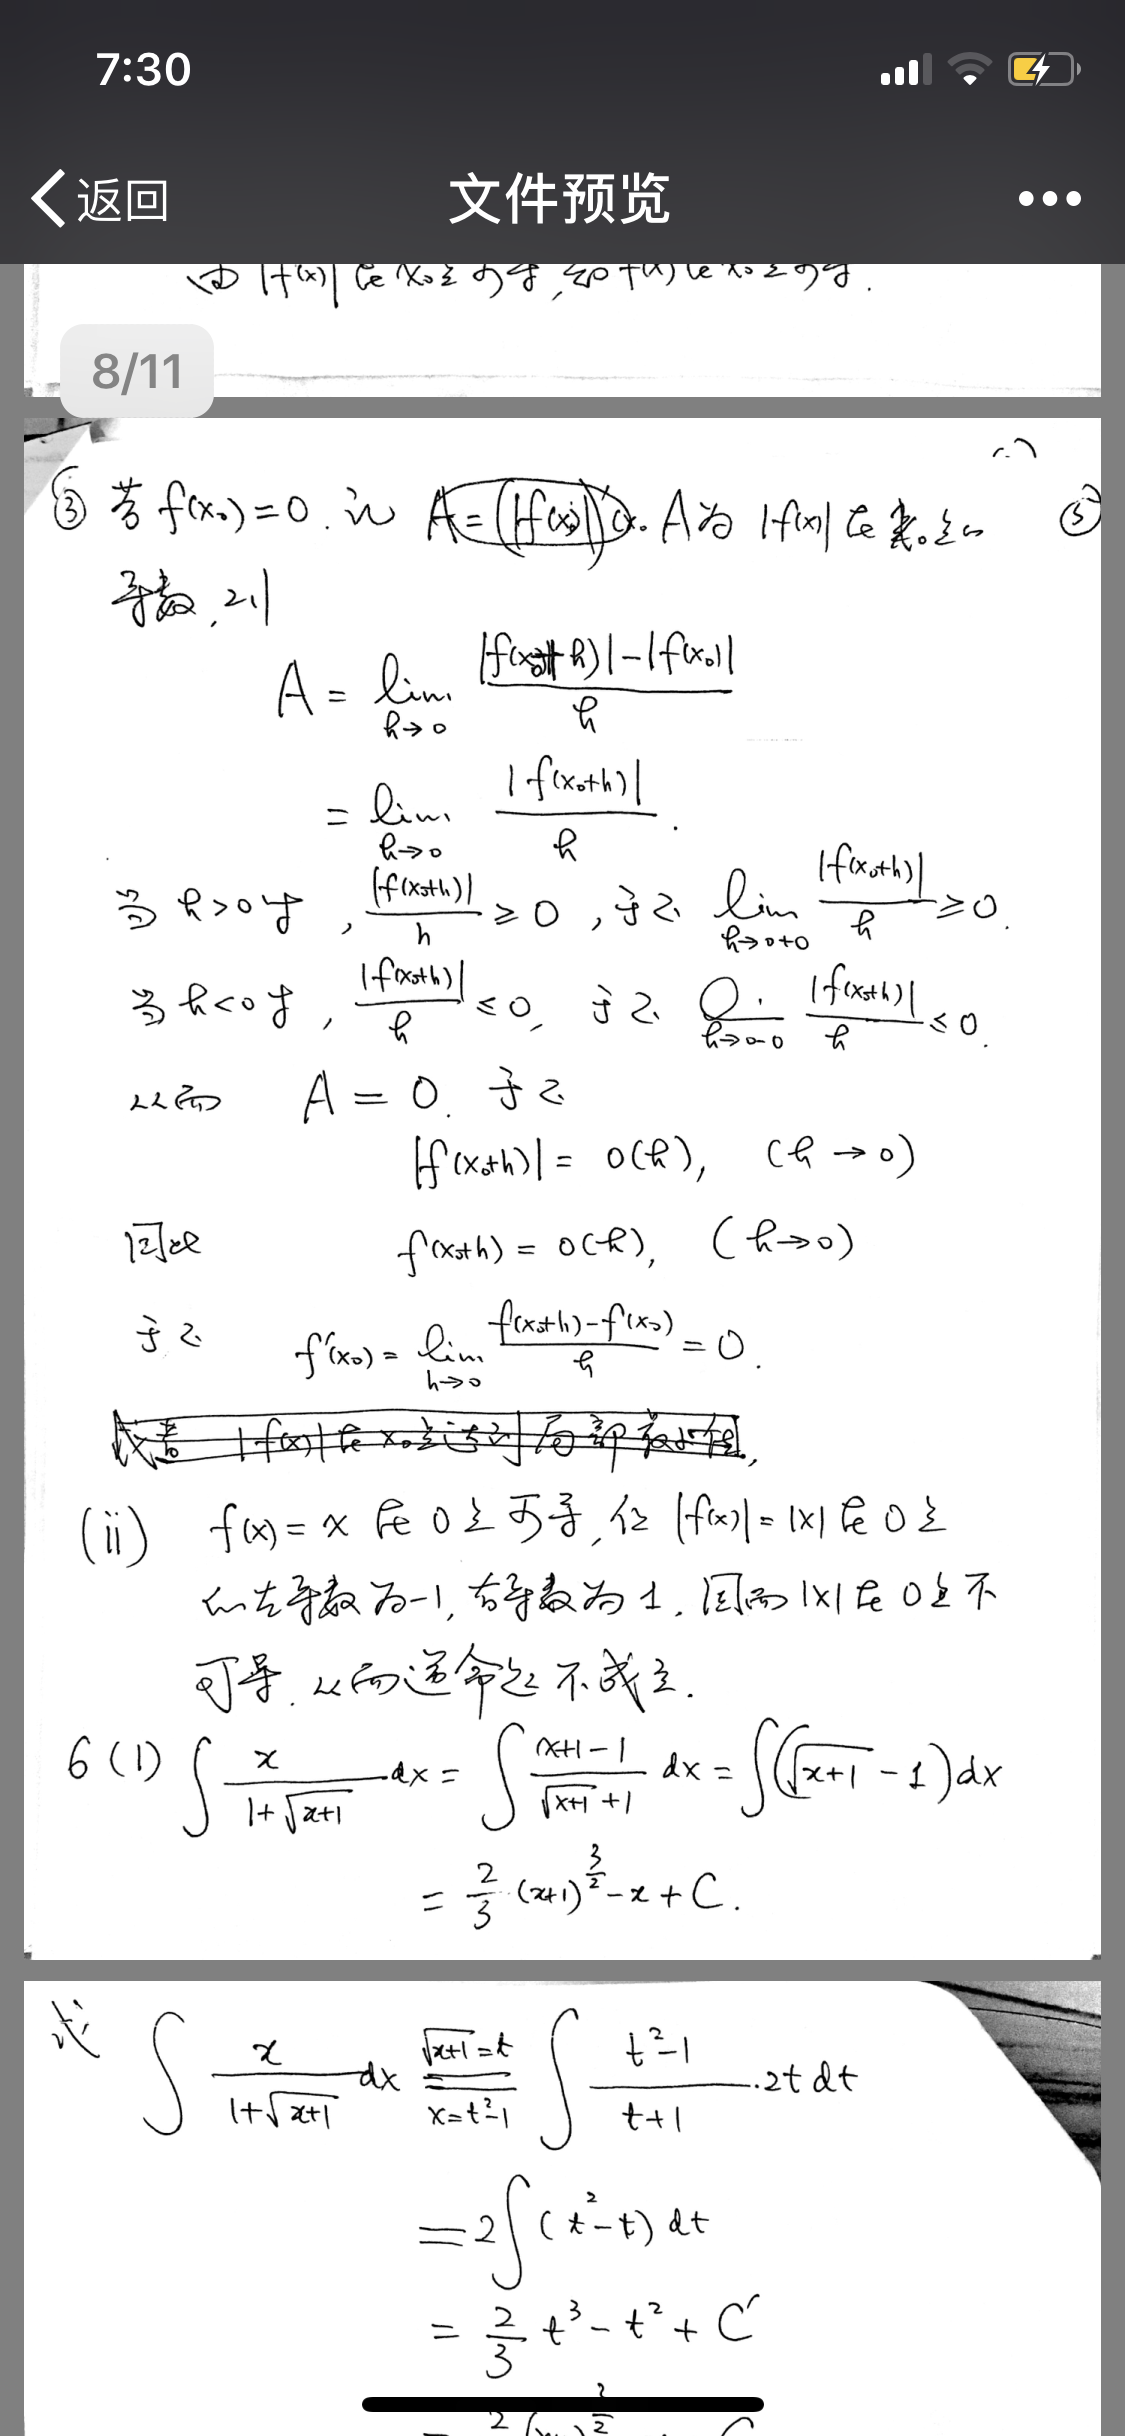 7:30
返回 文件预览
由 |f(x)| 在 x₀ 点可导, 知 f(x) 在 x₀ 点可导.
8/11
③ 若 f(x₀)=0. 记 A=(|f(x)|)' A为 |f(x)| 在 x₀ 点的
导数, 则
A = lim_{h→0} (|f(x₀+h)|-|f(x₀)|)/h
= lim_{h→0} |f(x₀+h)|/h .
当 h>0 时, |f(x₀+h)|/h ≥ 0, 于是 lim_{h→0+0} |f(x₀+h)|/h ≥ 0.
当 h<0 时, |f(x₀+h)|/h ≤ 0, 于是 lim_{h→0-0} |f(x₀+h)|/h ≤ 0.
从而 A = 0. 于是
|f(x₀+h)| = o(h), (h→0)
因此 f(x₀+h) = o(h), (h→0)
于是 f'(x₀) = lim_{h→0} (f(x₀+h)-f(x₀))/h = 0.
|f(x)| 在 x₀ 点达到局部极小值,
(ii) f(x) = x 在 0 点可导, 但 |f(x)| = |x| 在 0 点
的左导数为 -1, 右导数为 1, 因而 |x| 在 0 点不
可导. 从而逆命题不成立.
6 (1) ∫ x/(1+√(x+1)) dx = ∫ (x+1-1)/(√(x+1)+1) dx = ∫(√(x+1) - 1)dx
= 2/3 (x+1)^{3/2} - x + C.
或 ∫ x/(1+√(x+1)) dx √(x+1)=t x=t²-1 ∫ (t²-1)/(t+1) · 2t dt
= 2∫(t²-t) dt
= 2/3 t³ - t² + C'